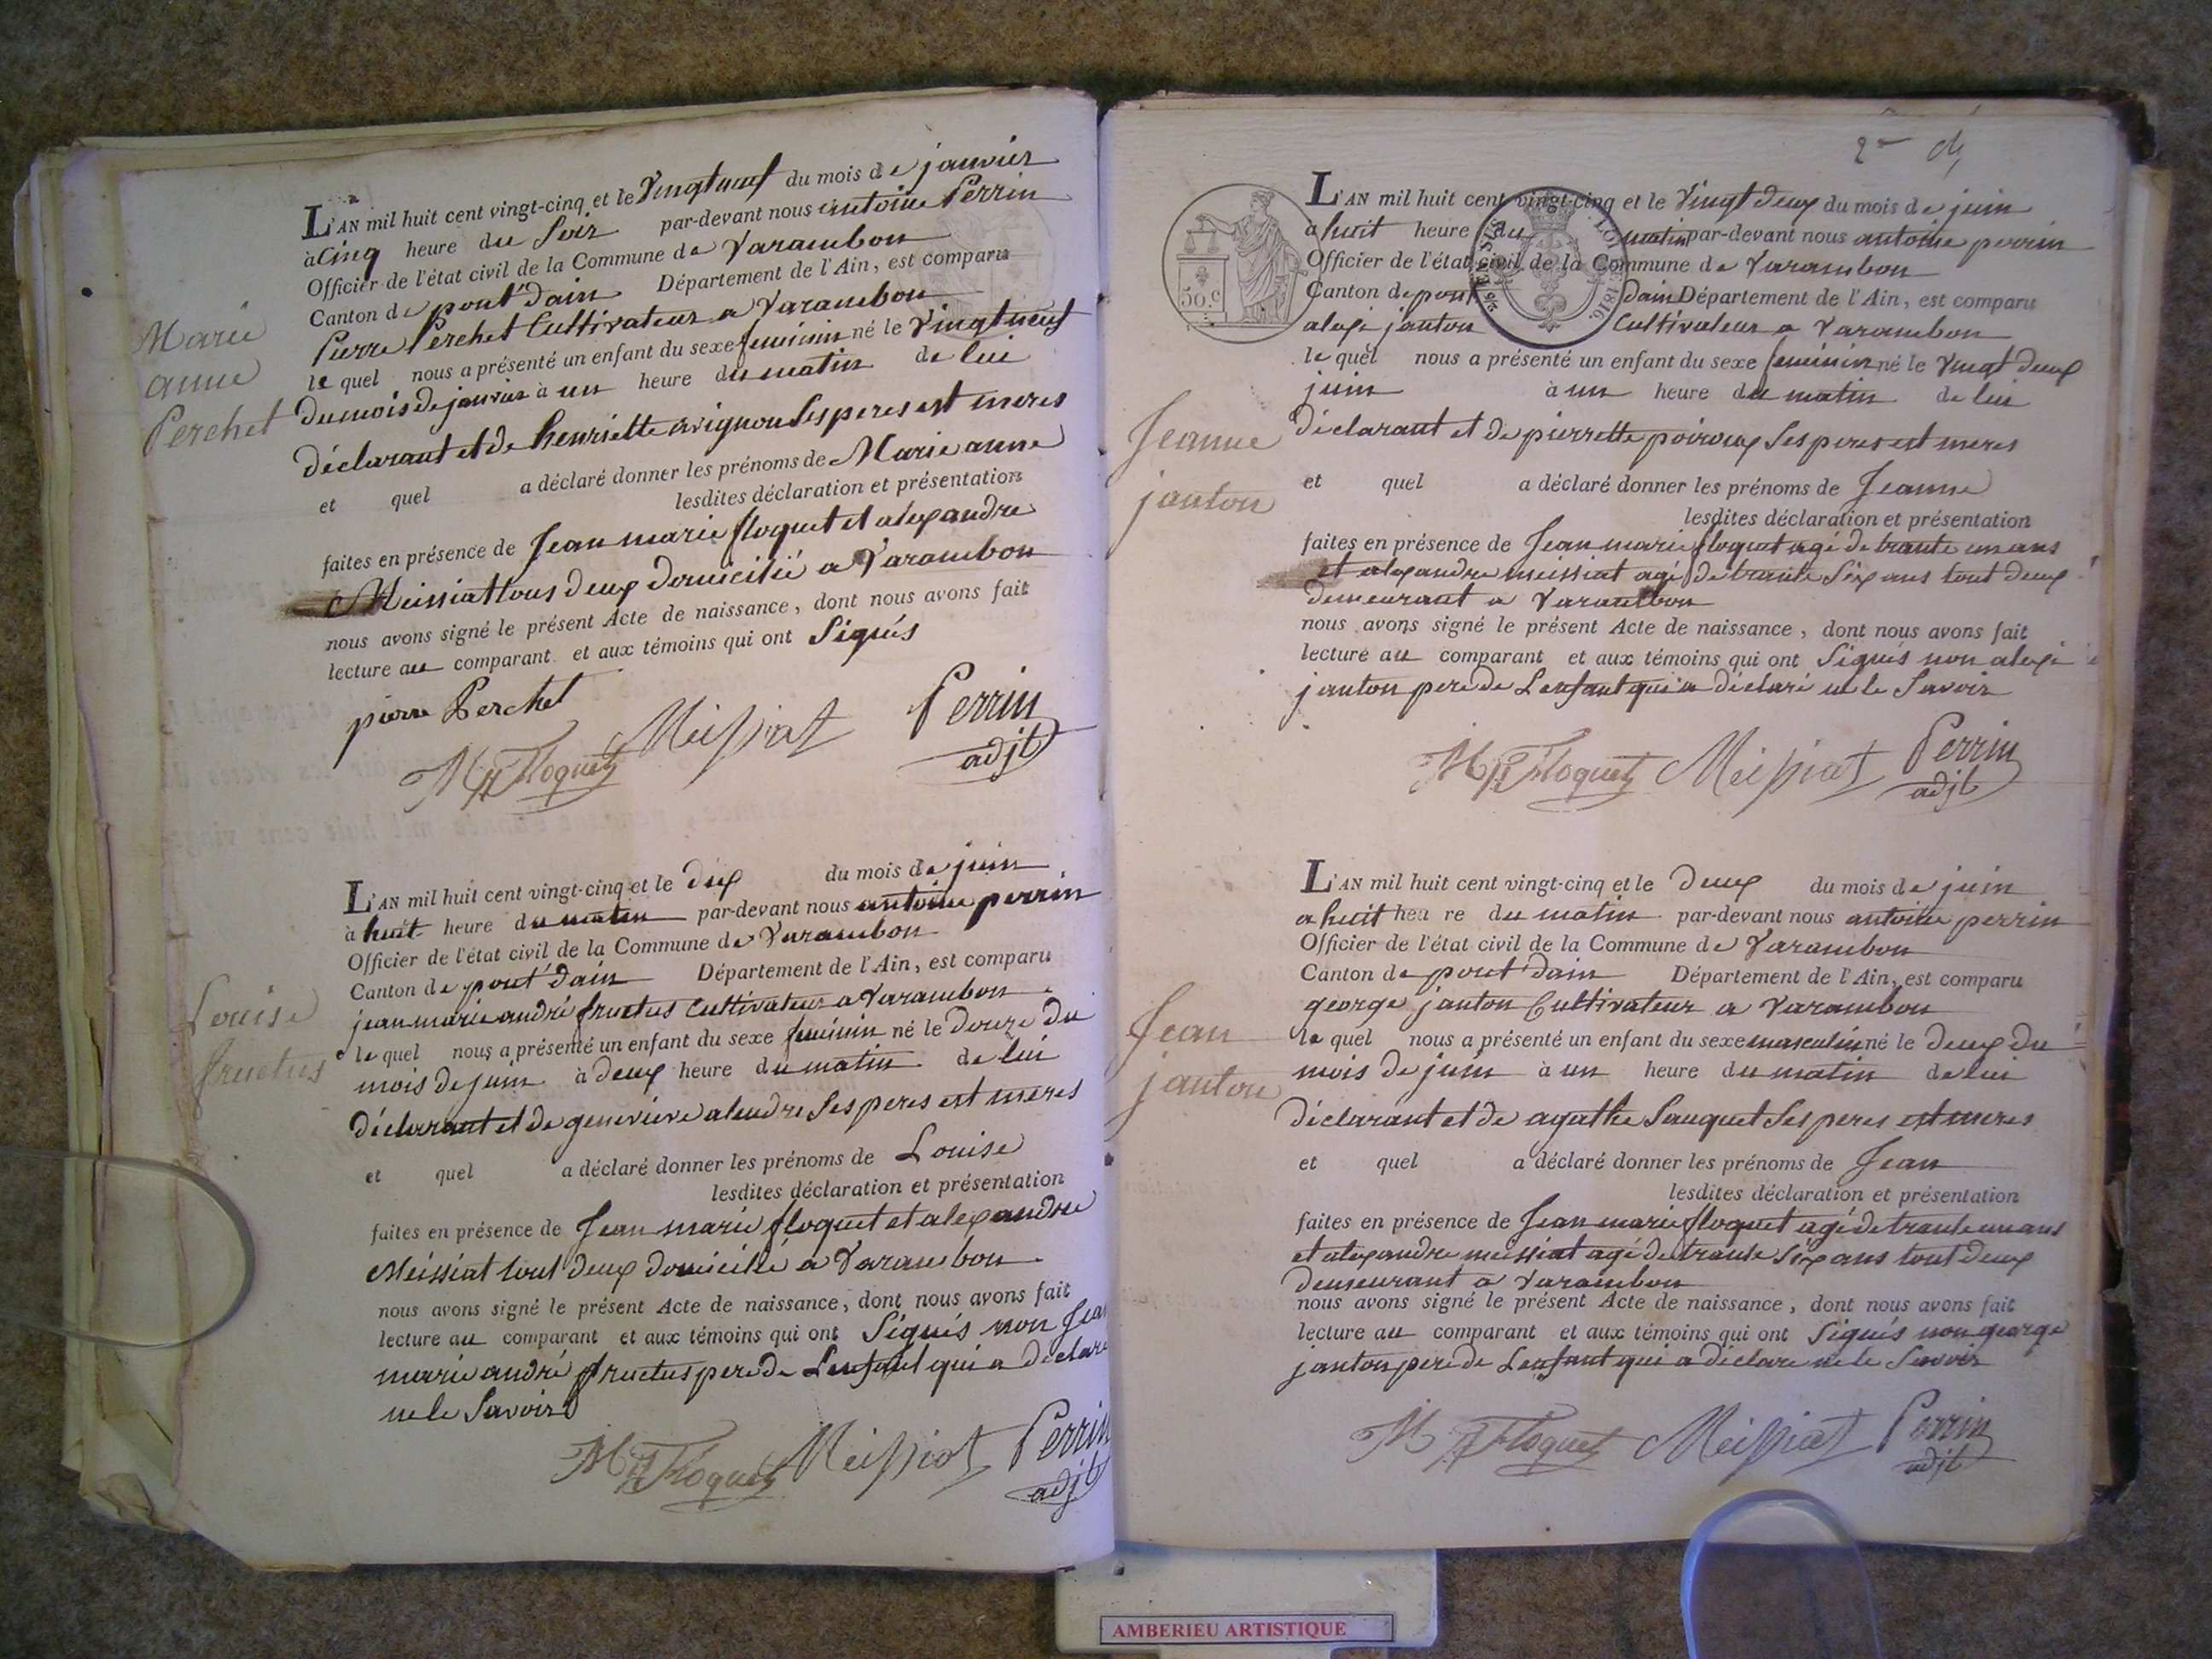 Marie
anne
Perchet
L'AN mil huit cent vingt-cinq et le Vingt neuf du mois de janvier
à Cinq heure du Soir par-devant nous antoine Perrin
Officier de l'état civil de la Commune de Varambon
Canton de pont'dain Département de l'Ain, est comparu
Pierre Perchet Cultivateur a Varambon
le quel nous a présenté un enfant du sexe feminin né le Vingt neuf
du mois de janvier à un heure du matin de lui
déclarant et de henriette avignon Ses peres est meres
et quel a déclaré donner les prénoms de Marie anne
lesdites déclaration et présentation
faites en présence de Jean marie floquet et alexandre
Meissiat tous deux domicilié a Varambon
nous avons signé le présent Acte de naissance, dont nous avons fait
lecture au comparant et aux témoins qui ont Signés
pierre Perchet
Floquet Meissiat Perrin
adjt
Louise
fructus
L'AN mil huit cent vingt-cinq et le dix du mois de juin
à huit heure du matin par-devant nous antoine perrin
Officier de l'état civil de la Commune de Varambon
Canton de pont'dain Département de l'Ain, est comparu
jean marie andré fructus Cultivateur a Varambon
le quel nous a présenté un enfant du sexe feminin né le douze du
mois de juin à deux heure du matin de lui
déclarant et de genevieve alendre Ses peres est meres
et quel a déclaré donner les prénoms de Louise
lesdites déclaration et présentation
faites en présence de Jean marie floquet et alexandre
Meissiat tout deux domicilié a Varambon
nous avons signé le présent Acte de naissance, dont nous avons fait
lecture au comparant et aux témoins qui ont Signés non Jean
marie andré fructus pere de Lenfant qui a déclaré
ne le Savoir
Floquet Meissiat Perrin
adjt
2me
50.c
Jeanne
janton
L'AN mil huit cent vingt-cinq et le Vingt deux du mois de juin
à huit heure du matin par-devant nous antoine perrin
Officier de l'état civil de la Commune de Varambon
Canton de pont dain Département de l'Ain, est comparu
alexi janton Cultivateur a Varambon
le quel nous a présenté un enfant du sexe feminin né le Vingt deux
juin à un heure du matin de lui
déclarant et de pierrette poiroux Ses peres est meres
et quel a déclaré donner les prénoms de Jeanne
lesdites déclaration et présentation
faites en présence de Jean marie floquet agé de trante un ans
et alexandre meissiat agé de trante Six ans tout deux
demeurant a Varambon
nous avons signé le présent Acte de naissance, dont nous avons fait
lecture au comparant et aux témoins qui ont Signés non alexi
janton pere de Lenfant qui a déclaré ne le Savoir
Floquet Meissiat Perrin
adjt
Jean
janton
L'AN mil huit cent vingt-cinq et le deux du mois de juin
a huit heure du matin par-devant nous antoine perrin
Officier de l'état civil de la Commune de Varambon
Canton de pont'dain Département de l'Ain, est comparu
george janton Cultivateur a Varambon
le quel nous a présenté un enfant du sexe masculin né le deux du
mois de juin à un heure du matin de lui
déclarant et de agathe Sauquet Ses peres est meres
et quel a déclaré donner les prénoms de Jean
lesdites déclaration et présentation
faites en présence de Jean marie floquet agé de trante un ans
et alexandre meissiat agé de trante Six ans tout deux
demeurant a Varambon
nous avons signé le présent Acte de naissance, dont nous avons fait
lecture au comparant et aux témoins qui ont Signés non george
janton pere de Lenfant qui a déclaré ne le Savoir
Floquet Meissiat Perrin
adjt
AMBERIEU ARTISTIQUE